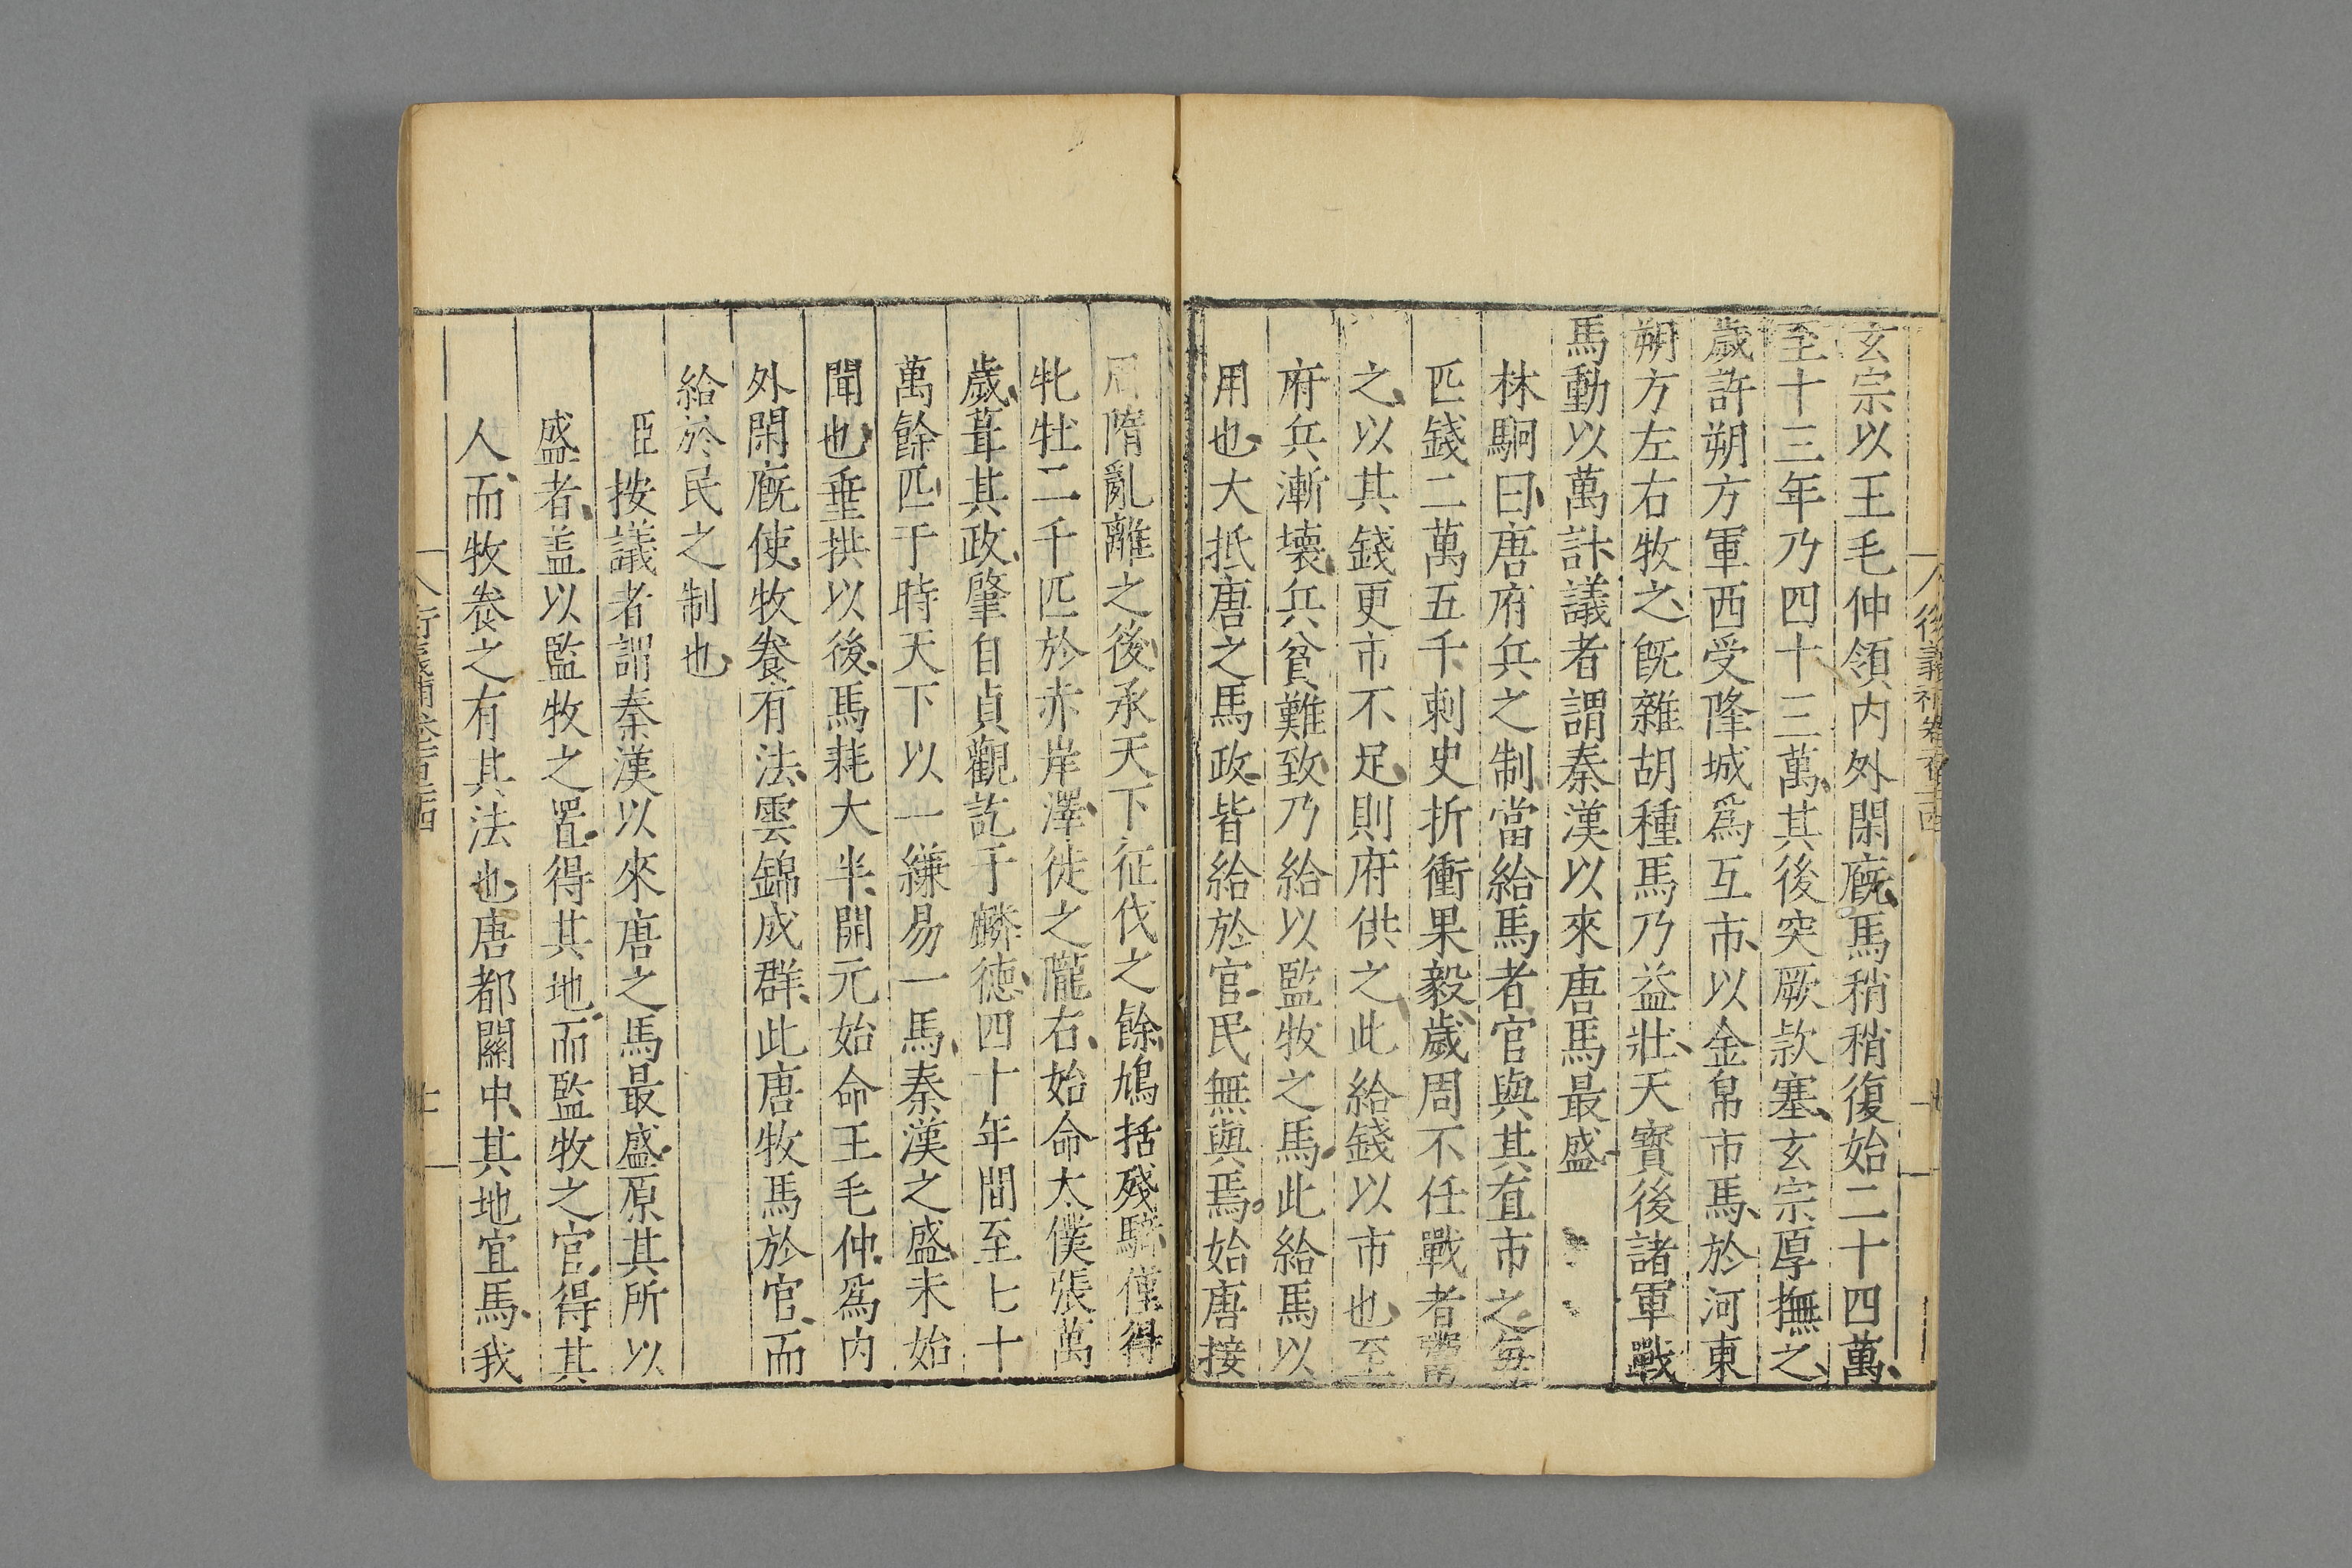 玄宗以王毛仲領內外閑廐馬稍稍復始二十四萬
至十三年乃四十三萬其後突厥款塞玄宗厚撫之
歲許朔方軍西受降城爲互市以金帛市馬於河東
朔方左右牧之旣雜胡種馬乃益壯天寶後諸軍戰
馬動以萬計議者謂秦漢以來唐馬最盛
林駉曰唐府兵之制當給馬者官與其直市之每
匹錢二萬五千刺史折衝果毅歲周不任戰者鬻
之以其錢更市不足則府供之此給錢以市也至
府兵漸壞兵貧難致乃給以監牧之馬此給馬以
用也大抵唐之馬政皆給於官民無與焉始唐接
周隋亂離之後承天下征伐之餘鳩括殘騎僅得
牝牡二千匹於赤岸澤徙之隴右始命太僕張萬
歲葺其政肇自貞觀訖于麟德四十年間至七十
萬餘匹于時天下以一縑易一馬秦漢之盛未始
聞也垂拱以後馬耗大半開元始命王毛仲爲內
外閑廐使牧養有法雲錦成群此唐牧馬於官而
給於民之制也
臣按議者謂秦漢以來唐之馬最盛原其所以
盛者盖以監牧之置得其地而監牧之官得其
人而牧養之有其法也唐都關中其地宜馬我